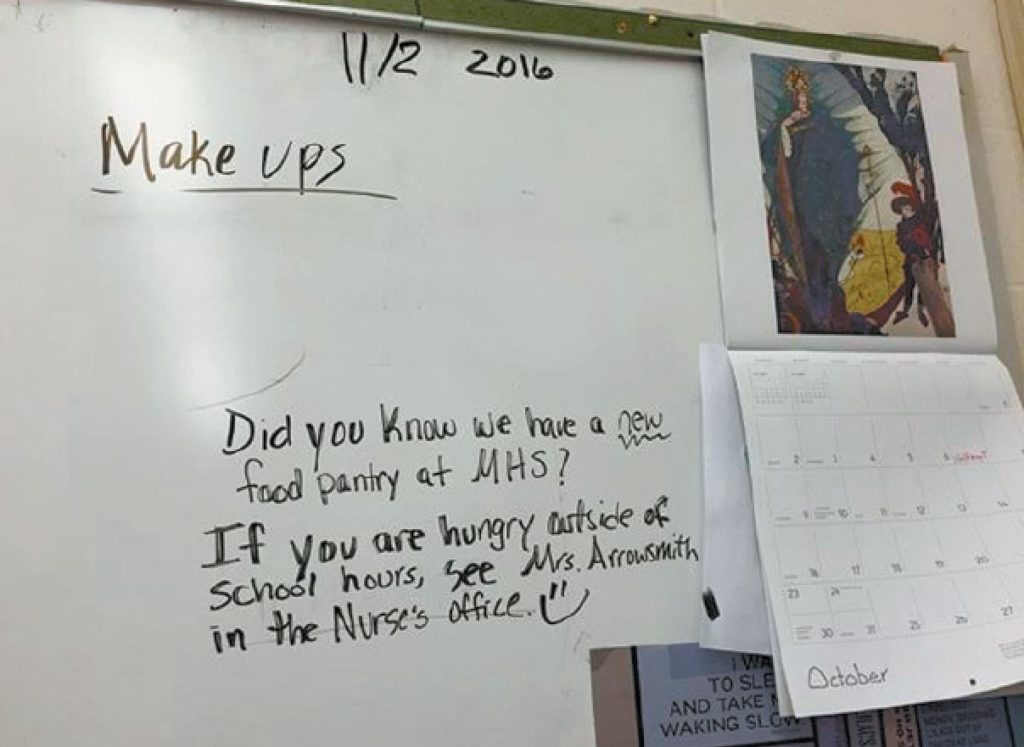 11/2 2016
Make ups
Did you know we have a new
food pantry at MHS?
If you are hungry outside of
school hours, see Mrs. Arrowsmith
in the Nurse's office.
2 3 4 5 6
9 10 11 12 13 14
16 17 18 19 20
23 24 25 26 27
30 31
October
I WA
TO SLE
AND TAKE
WAKING SLOW